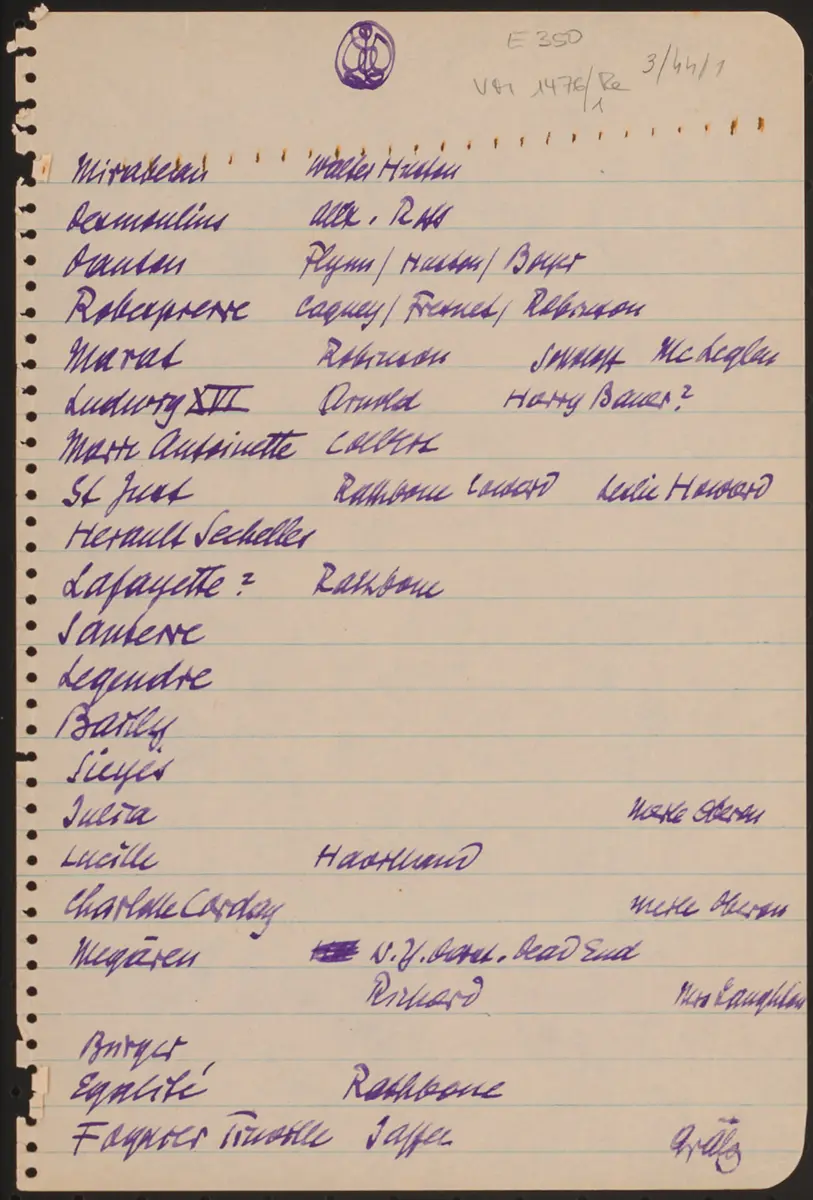 E 350
VM 1476/1 Re 3/44/1
Mirabeau Walter Huston
Desmoulins Alex. Ross
Danton Flynn / Huston / Boyer
Robespierre Cagney / Fresnet / Robinson
Marat Robinson Sokoloff Mc Leglen
Ludwig XVI Arnold Harry Bauer?
Marie Antoinette Colbert
St Just Rathbone Leslie Howard
Herault Sechelles
Lafayette? Rathbone
Santerre
Legendre
Bailly
Sieyès
Julia Merle Oberon
Lucille Haviland
Charlotte Corday Merle Oberon
Megären N.Y. Dead End
Richard Mrs Laughton
Bürger
Egalité Rathbone
Foquier Tinville Jaffee